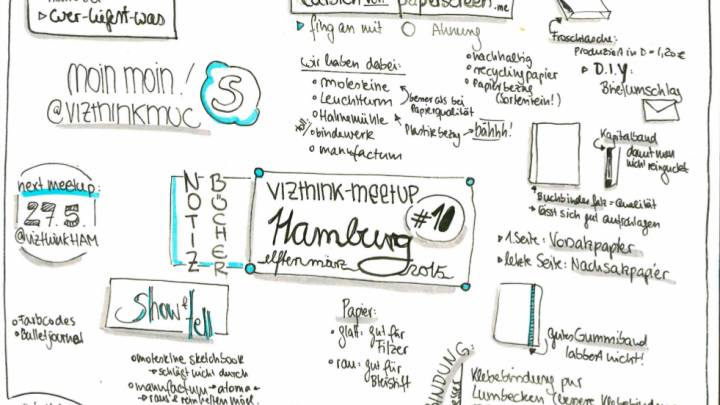 ▷ wer-liefert-was
von paperscreen.me
▷ fing an mit ○ Ahnung
moin moin!
@vizthinkmuc
S
wir haben dabei:
• moleskine
• Leuchtturm
• Hahnemühle
• bindewerk
• manufactum
besser als bei
Papierqualität
Plastikbezug → bähhh!
• nachhaltig
• recyclingpapier
• Papierbezug
Froschtasche:
Produziert in D = 1,20€
▷ D.I.Y.:
Briefumschlag
Kapitalband
damit man
nicht reinguckt
• Buchbinderfalz = Qualität
→ lässt sich gut aufschlagen
▷ 1. Seite: Vorsatzpapier
▷ letzte Seite: Nachsatzpapier
next meetup:
27.5.
@vizthinkHAM
NOTIZ
BÜCHER
vizthink-meetup
#10
Hamburg
elften märz 2015
Show & tell
• Farbcodes
• Bulletjournal
• moleskine sketchbook
→ schlägt nicht durch
• manufactum → atoma
Papier:
• glatt: gut für
Filzer
• rau: gut für
Bleistift
gutes Gummiband
labbert nicht!
Klebebindung pur
Lumbecken